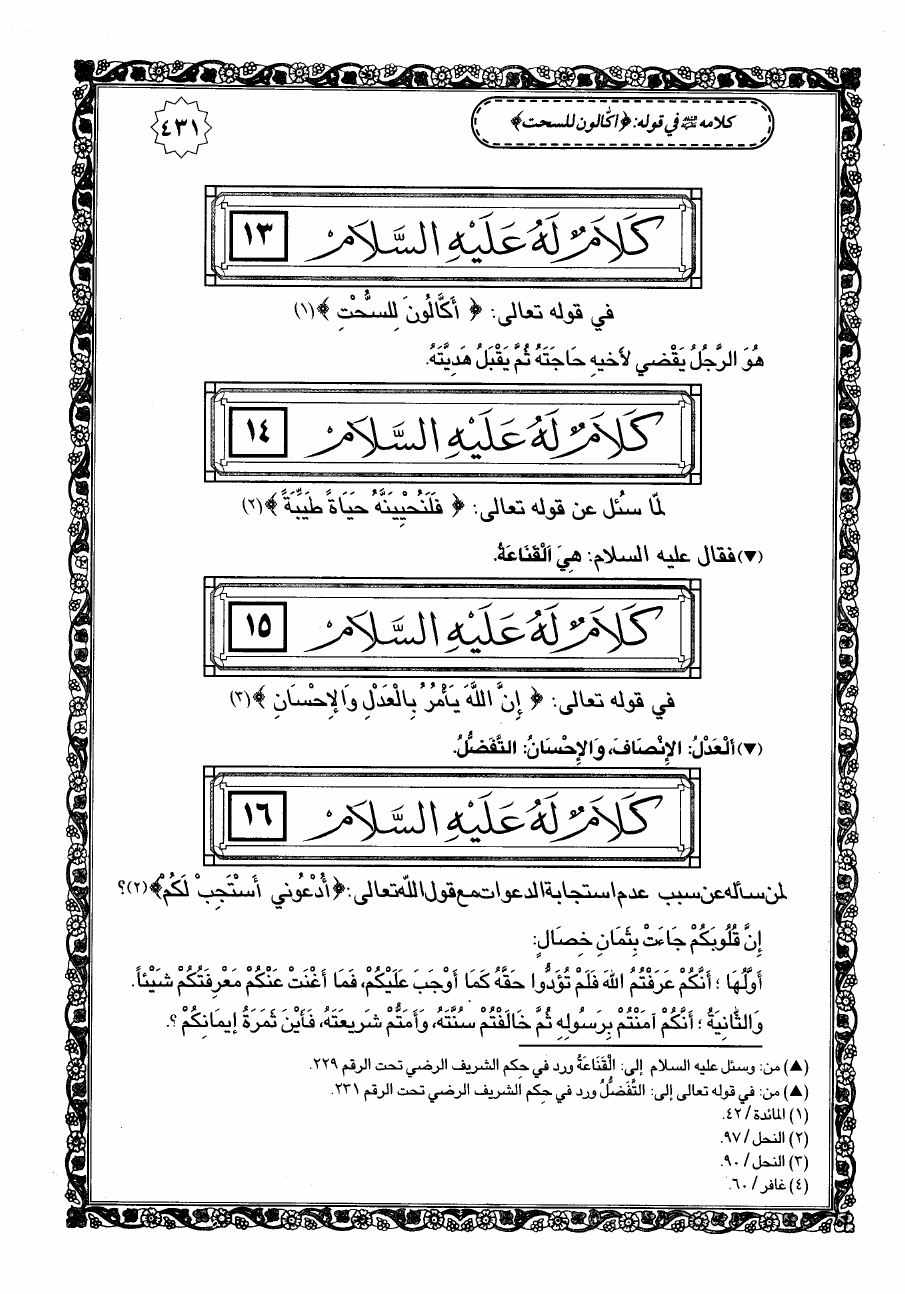 كلامه عليه السلام في قوله: ﴿اكالون للسحت﴾
٤٣١
كَلَامٌ لَهُ عَلَيْهِ السَّلَامُ ١٣
في قوله تعالى: ﴿ أَكَّالُونَ لِلسُّحْتِ ﴾(١)
هُوَ الرَّجُلُ يَقْضي لأَخيهِ حَاجَتَهُ ثُمَّ يَقْبَلُ هَدِيَّتَهُ.
كَلَامٌ لَهُ عَلَيْهِ السَّلَامُ ١٤
لمّا سئُل عن قوله تعالى: ﴿ فَلَنُحْيِيَنَّهُ حَيَاةً طَيِّبَةً ﴾(٢)
(▼) فقال عليه السلام: هِيَ اَلْقَنَاعَةُ.
كَلَامٌ لَهُ عَلَيْهِ السَّلَامُ ١٥
في قوله تعالى: ﴿ إِنَّ اللَّهَ يَأْمُرُ بِالْعَدْلِ وَالإِحْسَانِ ﴾(٣)
(▼) اَلْعَدْلُ: الإِنْصَافَ، وَالإِحْسَانُ: التَّفَضُّلُ.
كَلَامٌ لَهُ عَلَيْهِ السَّلَامُ ١٦
لمن سأله عن سبب عدم استجابة الدعوات مع قول اللّه تعالى: ﴿أُدْعُوني أَسْتَجِبْ لَكُمْ﴾(٢)؟
إِنَّ قُلُوبَكُمْ جَاءَتْ بِثَمَانِ خِصَالٍ:
أَوَّلُهَا ؛ أَنَّكُمْ عَرَفْتُمُ اللهَ فَلَمْ تُؤَدُّوا حَقَّهُ كَمَا أَوْجَبَ عَلَيْكُمْ، فَمَا أَغْنَتْ عَنْكُمْ مَعْرِفَتُكُمْ شَيْئاً.
وَالثَّانِيَةُ ؛ أَنَّكُمْ آمَنْتُمْ بِرَسُولِهِ ثُمَّ خَالَفْتُمْ سُنَّتَهُ، وَأَمَتُّمْ شَريعَتَهُ، فَأَيْنَ ثَمَرَةُ إيمَانِكُمْ ؟.
(▲) من: وسئل عليه السلام إلى: الْقَنَاعَةُ ورد في حِكم الشريف الرضي تحت الرقم ٢٢٩.
(▲) من: في قوله تعالى إلى: التَّفَضُّلُ ورد في حِكم الشريف الرضي تحت الرقم ٢٣١.
(١) المائدة / ٤٢.
(٢) النحل / ٩٧.
(٣) النحل / ٩٠.
(٤) غافر / ٦٠.